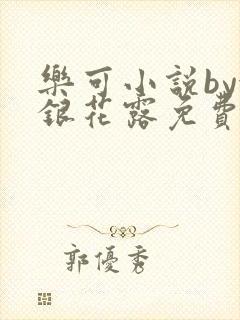 樂可小説by
銀花露免費
郭優秀